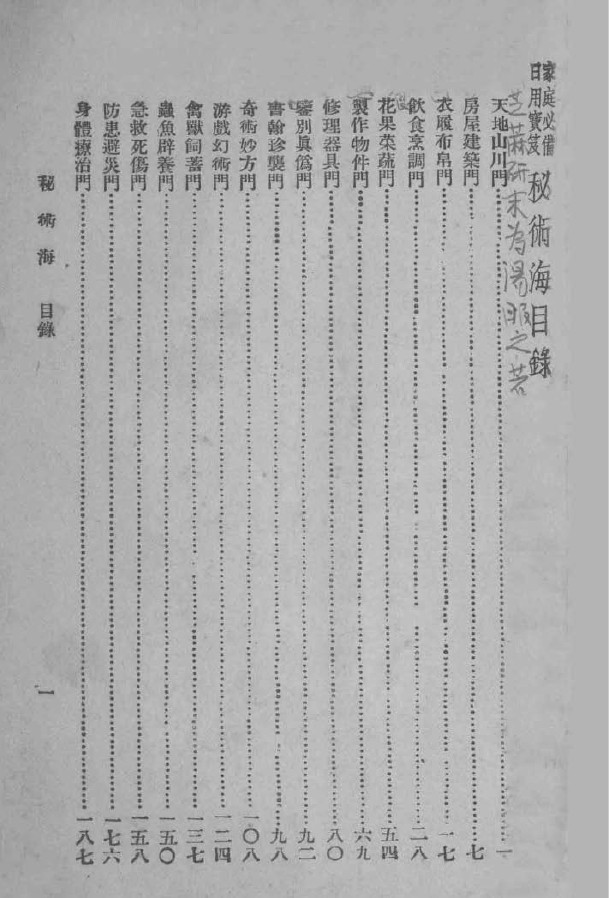 家庭必備
日用寶笈
秘術海目錄
芝麻研末為湯服之若
天地山川門一
房屋建築門七
衣履布帛門一七
飲食烹調門二八
花果菜蔬門五四
製作物件門六九
修理器具門八〇
鑒別眞僞門九二
書翰珍襲門九八
奇術妙方門一〇八
游戲幻術門一二四
禽獸飼蓄門一三七
蟲魚辟養門一五〇
急救死傷門一五八
防患避災門一七六
身體療治門一八七
秘術海 目錄 一